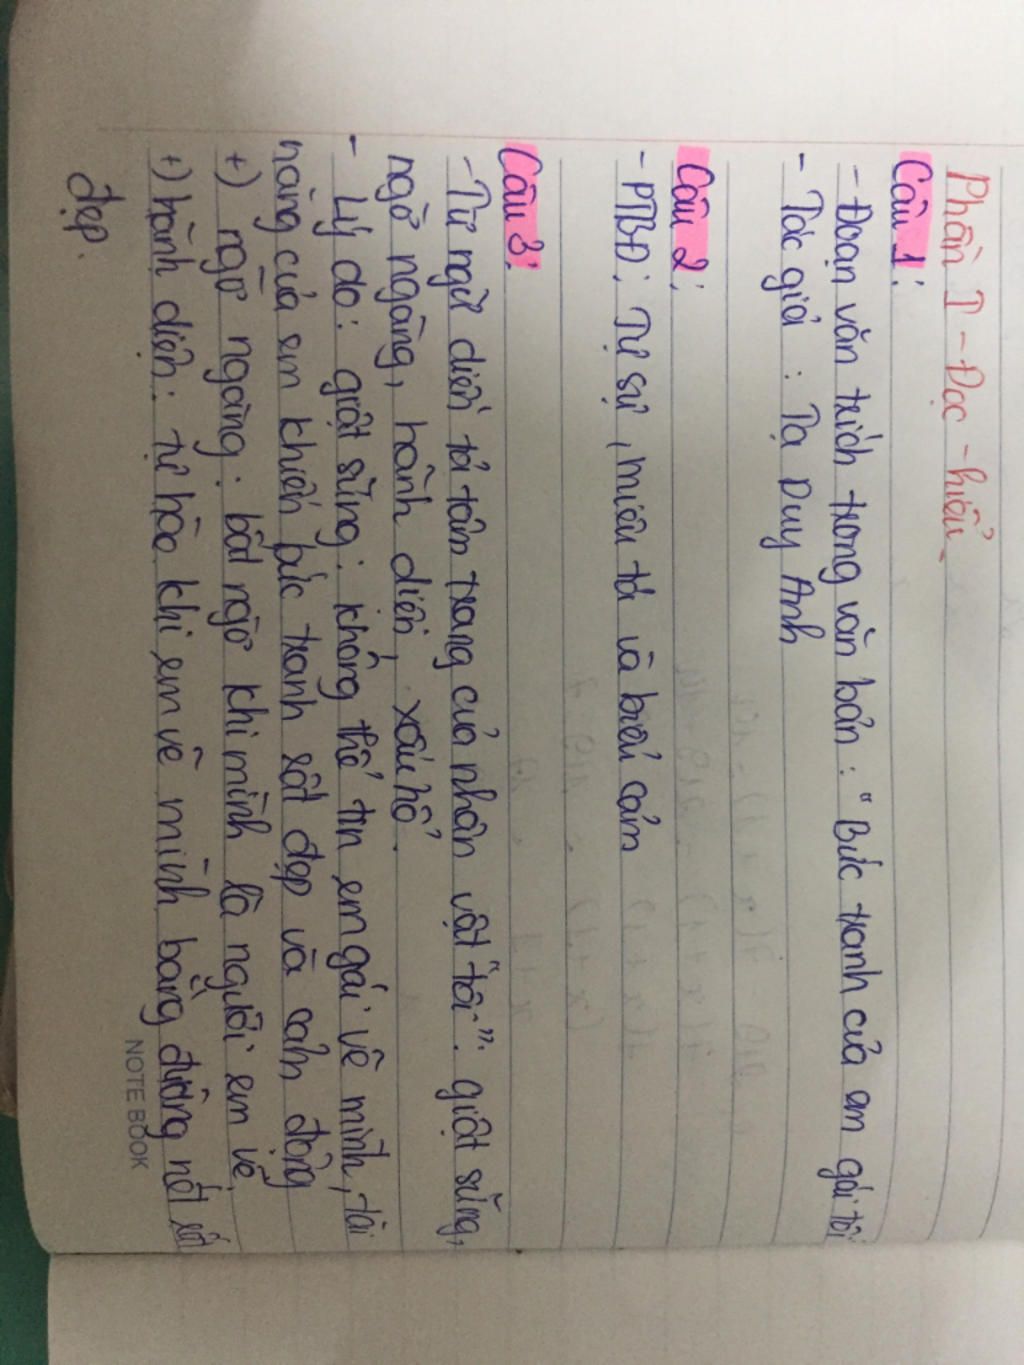 Phần I - Đọc - hiểu
Câu 1:
- Đoạn văn trích trong văn bản: "Bức tranh của em gái tôi
- Tác giả: Tạ Duy Anh
Câu 2:
- PTBĐ: Tự sự, miêu tả và biểu cảm
Câu 3:
- Từ ngữ diễn tả tâm trạng của nhân vật "tôi": giật sững,
ngỡ ngàng, hãnh diện, xấu hổ.
- Lý do: giật sững: không thể tin em gái vẽ mình, tài
năng của em khiến bức tranh rất đẹp và cảm động
+) ngỡ ngàng: bất ngờ khi mình là người em vẽ.
+) hãnh diện: tự hào khi em vẽ mình bằng đường nét rất
đẹp.
NOTE BOOK